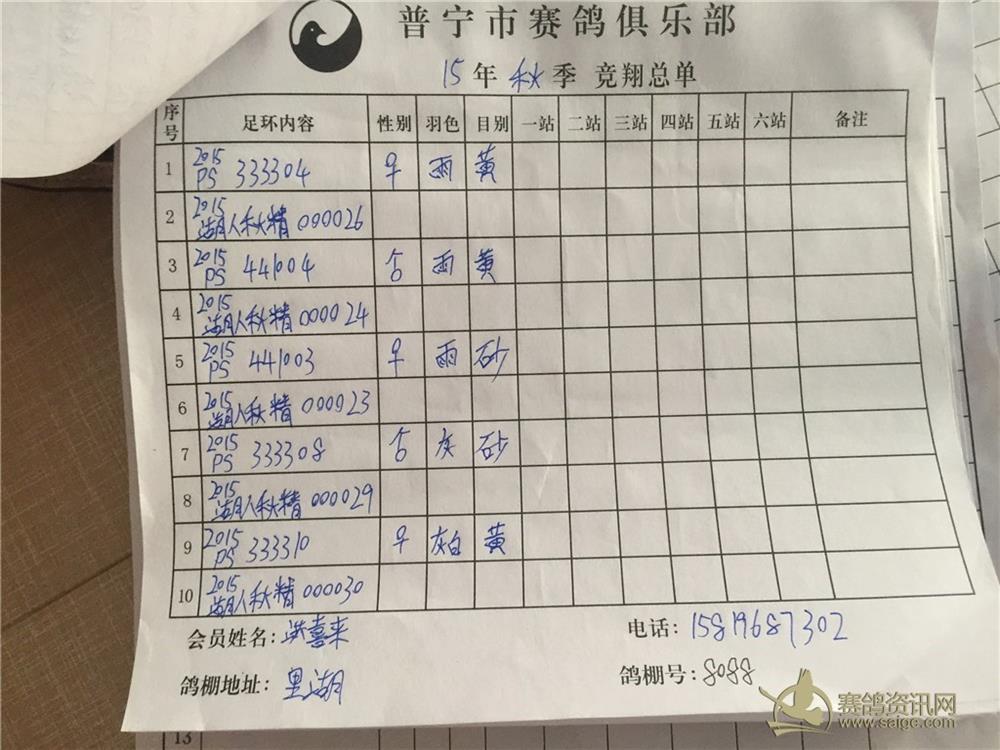 普宁市赛鸽俱乐部
15年 秋季 竞翔总单
序号 足环内容 性别 羽色 目别 一站 二站 三站 四站 五站 六站 备注
1 2015 PS 333304 ♀ 雨 黄
2 2015 湖人秋精 000026
3 2015 PS 441004 ♂ 雨 黄
4 2015 湖人秋精 000024
5 2015 PS 441003 ♀ 雨 砂
6 2015 湖人秋精 000023
7 2015 PS 333308 ♂ 灰 砂
8 2015 湖人秋精 000029
9 2015 PS 333310 ♀ 灰白 黄
10 2015 湖人秋精 000030
会员姓名：洪喜来 电话：15819687302
鸽棚地址：里湖 鸽棚号：8088
赛鸽资讯网
www.saige.com
13